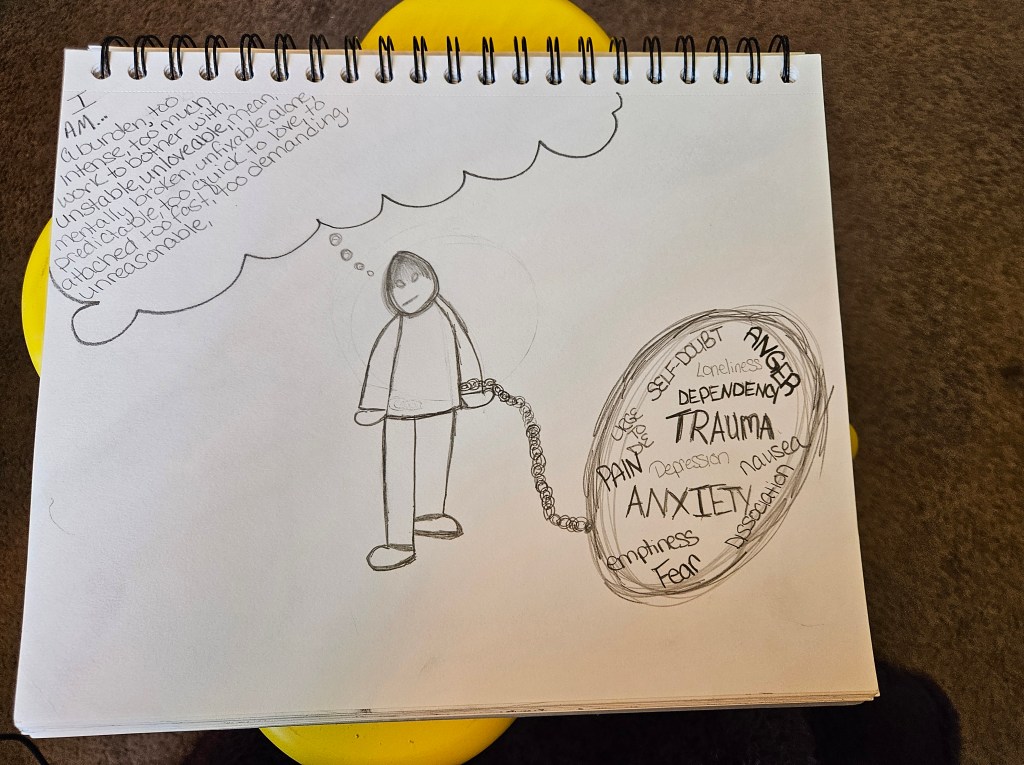 I
AM...
a burden, too
intense, too much
work to bother with,
unstable, unloveable, mean,
mentally broken, unfixable, alone,
predictable, too quick to love, to
attached too fast, too demanding,
unreasonable,
SELF-DOUBT
ANGER
Loneliness
DEPENDENCY
URGE
TO
DIE
TRAUMA
PAIN
Depression
nausea
ANXIETY
Dissociation
emptiness
Fear